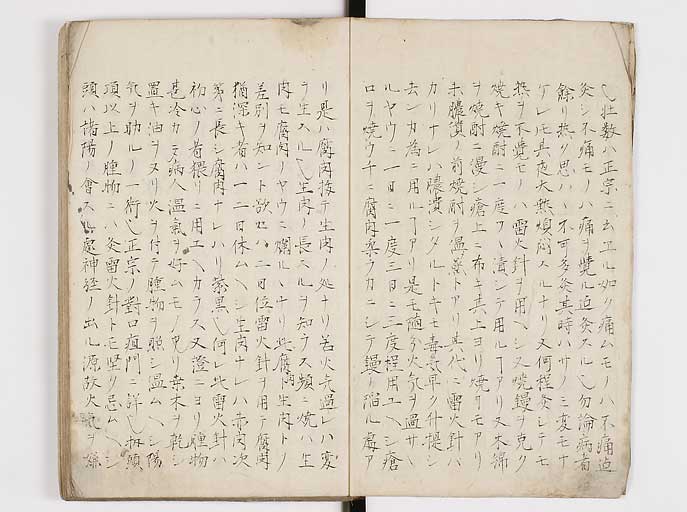 壮数ハ正宗ニ出エル如ク痛ムモノハ不痛迠
灸シ不痛モノハ痛ヲ覺ル迠灸スル勿論病者
餘リ熱ク思ハヽ不可多灸其時ハサノミ変モナ
ケレ𪜈其夜大熱煩悶スルナリ又何程灸シテモ
熱ヲ不覺モノハ雷火針ヲ用ヘシ又焼鏝ヲ克ク
焼キ焼酎ニ一度ツヽ漬シテ用ルヿアリ又木綿
ヲ焼酎ニ漫シ瘡上ニ布キ其上ヨリ焼クモアリ
未膿潰ノ前焼酎ヲ温薬トアリ其代ニ雷火針ハ
カリナレハ膿潰シタルトキモ毒氣早ク提シ
去ンカ為ニ用ルヿアリ是モ随分火氣ヲ過サヽ
ルヤウニ一日ニ一度三日ニ三度程用ユヘシ瘡
口ヲ焼ウチニ腐肉柔ラカニシテ鏝ノ陥ル處ア
リ是ハ腐肉接テ生肉ノ処ナリ若火氣過レハ変
ヲ生スルヘシ生肉ノ長スルヲ知ラス頻ニ焼ハ生
肉モ腐肉ノヤウニ爛ルヽナリ此腐肉生肉トノ
差別ヲ知ント欲セハ二日位雷火針ヲ用テ腐肉
猶深キ者ハ一二日休ムヘシ生肉ナレハ赤肉次
第ニ長シ腐肉ナレハリ紫黒シ何レ此雷火針ハ
初心ノ者猥リニ用エヘカラス又證ニヨリ腫物
甚冷カニ病人温氣ヲ好ムモノアリ桑木ヲ乾シ
置キ油ヲヌリ火ヲ付テ腫物ヲ照シ温ムヘシ陽
氣ヲ助ルノ一術シ正宗ノ對口疽門ニ詳シ拟頭
項以上ノ腫物ニハ灸雷火針トモ堅ク忌ムヘシ
頭ハ諸陽ノ會スル處神経ノ出ル源故火氣ヲ嫌